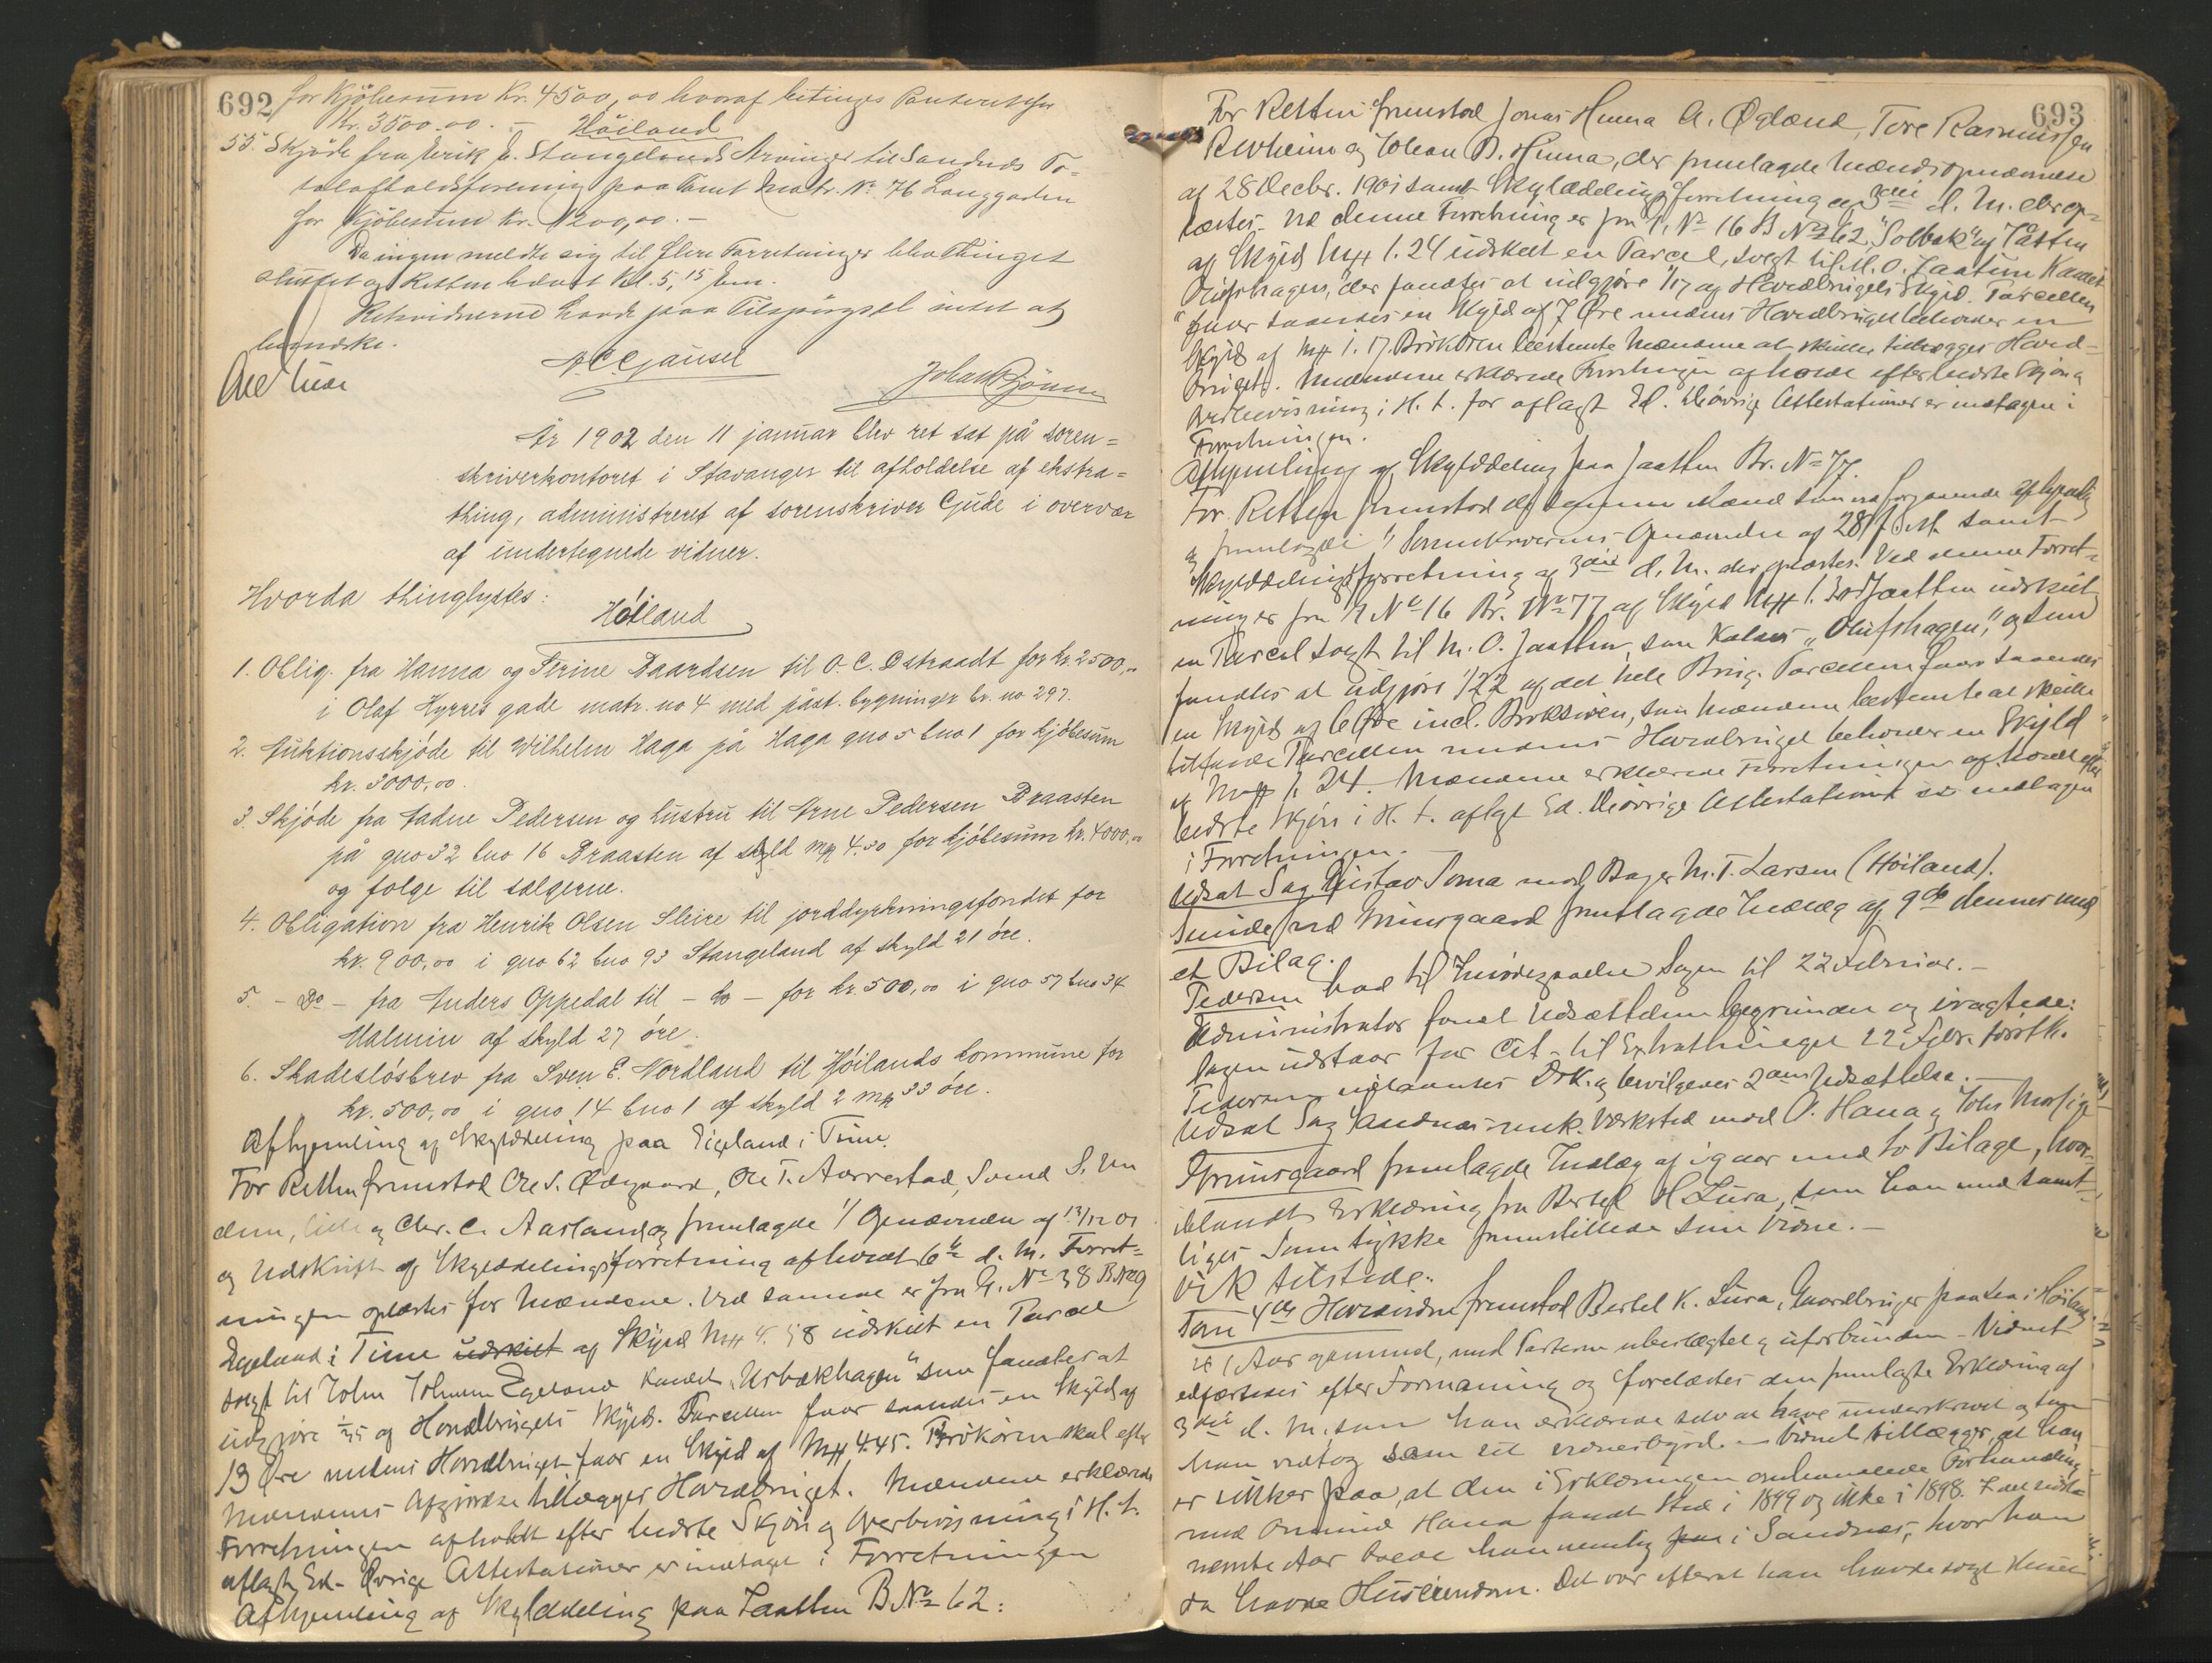 692
for Kjöbesum Kr. 4500,00 hvoraf betinges Panteret for
Kr. 3500.00. –
Höiland
55. Skjöde fra Eerik E. Stangelands Arvinger til Sandnes To-
talafholdsforening paa Tomt Matr. No 76 Langgaden
for Kjöbesum Kr. 1200,00. –
Da ingen meldte sig til flere Forretninger blev Thinget
sluttet og Retten hævet Kl. 5,15 Em.
Retsvidnerne havde paa Tilspörgsel intet at
bemærke.
År 1902 den 11 januar blev ret sat på soren=
skriverkontoret i Stavanger til afholdelse af ekstra=
thing, administreret af sorenskriver Gjude i overvær
af undertegnede vidner.
Hvorda thinglystes:
Höiland
1. Oblig. fra Hanna og Serine Baardsen til O. C. Østraadt for kr. 2500,00
i Olaf Kyrres gade matr. no 4 med påst. bygninger br. no 297.
2. Auktionsskjöde til Wilhelm Haga på Haga gno 5 bno 1 for kjöbesum
kr. 3000,00.
3. Skjöde fra Aadne Pedersen og hustru til Arne Pedersen Braasten
på gno 32 bno 16 Braasten af skyld mk 4.30 for kjöbesum kr. 4000,00
og folge til sælgerne.
4. Obligation fra Henrik Olsen Sleire til jorddyrkningsfondet for
kr. 900,00 i gno 62 bno 93 Stangeland af skyld 21 öre.
5. – Do – fra Anders Oppedal til – do – for kr. 500,00 i gno 57 bno 34
Malmin af skyld 27 öre.
6. Skadeslösbrev fra Sven E. Nordland til Höilands kommune for
kr. 500,00 i gno 14 bno 1 af skyld 2 mk 33 öre.
Afhjemling af Skylddeling paa Eigeland i Time.
For Retten fremstod Ole S. Ødegaard, Ole T. Aarrestad, Svend S. Un
dem, og Chr. C. Aarland og fremlagde 1/ Opnævnelse af 13/12 01
og Udskrift af Skylddelingsforretning afholdt 6te d. M. Forret=
ningen oplæstes for Mændene. Ved samme er fra G. No 38 B No 9
Egeland i Time udskilt af Skyld Mk 4.58 udskilt en Parcel
solgt til John Johnsen Egeland kaldet "Urbækhagen" som fandtes at
udgjøre 1/35 af Hovedbrugets Skyld. Parcellen faar saaledes en Skyld af
13 Øre medens Hovedbruget faar en Skyld af Mk 4.45. Brøkøren skal efter
Mændenes Afgjørelse tillægges Hovedbruget. Mændene erklærede
Forretningen afholdt efter bedste Skjøn og Overbevisning i H. t.
aflagt Ed. Øvrige Attestationer er indtaget i Forretningen
Afhjemling af Skylddeling paa Jaatten B. No 62:
693
For Retten fremstod Jonas Hunna A. Øgland, Tore Rasmussen
Revheim og Johan B. Hunna, der fremlagde Mændsopnævnelse
af 28 Decbr. 1901 samt Skylddelingsforretning af 3die d. M. der op=
læstes. Ved denne Forretning er fra G. No 16 B No 62 "Solbak" af Jåtten
af Skyld Mk 1.24 udskilt en Parcel, solgt til M. O. Jaatten kaldet
"Olufshagen", der fandtes at udgjøre 1/17 af Hovedbrugets Skyld. Parcellen
faar saaledes en Skyld af 7 Øre medens Hovedbruget beholder en
Skyld af Mk 1.17. Brøkøren bestemte Mændene at skulle tillægges Hoved=
bruget. Mændene erklærede Forretningen afholdt efter bedste Skjøn og
Overbevisning i H. t. før aflagt Ed. De øvrige Attestationer er indtagen i
Forretningen.
Afhjemling af Skylddeling paa Jaatten Br. No 77.
For Retten fremstod de samme Mænd som ved forgaaende Afhjemling
og fremlagde 1/ Sorenskriverens Opnævnelse af 28/ f. M. samt
Skylddelingsforretning af 3die d. M. der oplæstes. Ved denne Forret=
ning er fra G No 16 Br. No 77 af Skyld Mk 1.30 Jaatten udskilt
en Parcel solgt til M. O. Jaatten, som kaldes "Olufshagen", og som
fandtes at udgjøre 1/22 af det hele Brug. Parcellen faar saaledes
en Skyld af 6 Øre incl. Brøkøren, som Mændene bestemte at skulle
tilfalde Parcellen medens Hovedbruget beholder en Skyld
af Mk 1.24. Mændene erklærede Forretningen afholdt efter
bedste Skjøn i H. t. aflagt Ed. De øvrige Attestationer er indtagen
i Forretningen. –
Udsat Sag Gustav Soma mod Bager M. T. Larsen (Höiland).
Sunde ved Grimsgaard fremlagde Indlæg af 9de dennes med
et Bilag.
Pedersen bad til Imødegaaelse Sagen til 22 Februar. –
Administrator fandt Udsættelsen begrundet og eragtede:
Sagen udstaar før Cit. til Extrathinget 22 Febr. førstk.
Pedersen meddeltes Drk. og bevilgedes 2den Udsættelse. –
Udsat Sag Sandnæs mek. Værksted mod O. Hana og Johs Norsige
Grimsgaard fremlagde Indlæg af igaar med to Bilage, hvor=
iblandt Erklæring fra Bertel H Lura, som han med samt=
liges Samtykke fremstillede som Vidne. –
Vi R tilstede.
Som 4de Hovedvidne fremstod Bertel K. Lura, Gaardbruger paa Lura i Höiland
Aar gammel, med Parterne ubeslægtet og uforbunden – Vidnet
edfæstedes efter Formaning og forelæstes den fremlagte Erklæring af
3die d. M. som han erklærede selv at have underskrevet og som
han vedtog som sit vidnesbyrd. – Vidnet tillægger, at han
er sikker paa, at den i Erklæringen omhandlede Forhandling
med Ommund Hana fandt Sted i 1899 og ikke i 1898. I det sidst=
nævnte Aar boede han nemlig i Sandnæs, hvor han
da havde Huseiendom. Det var efterat han havde solgt Huset